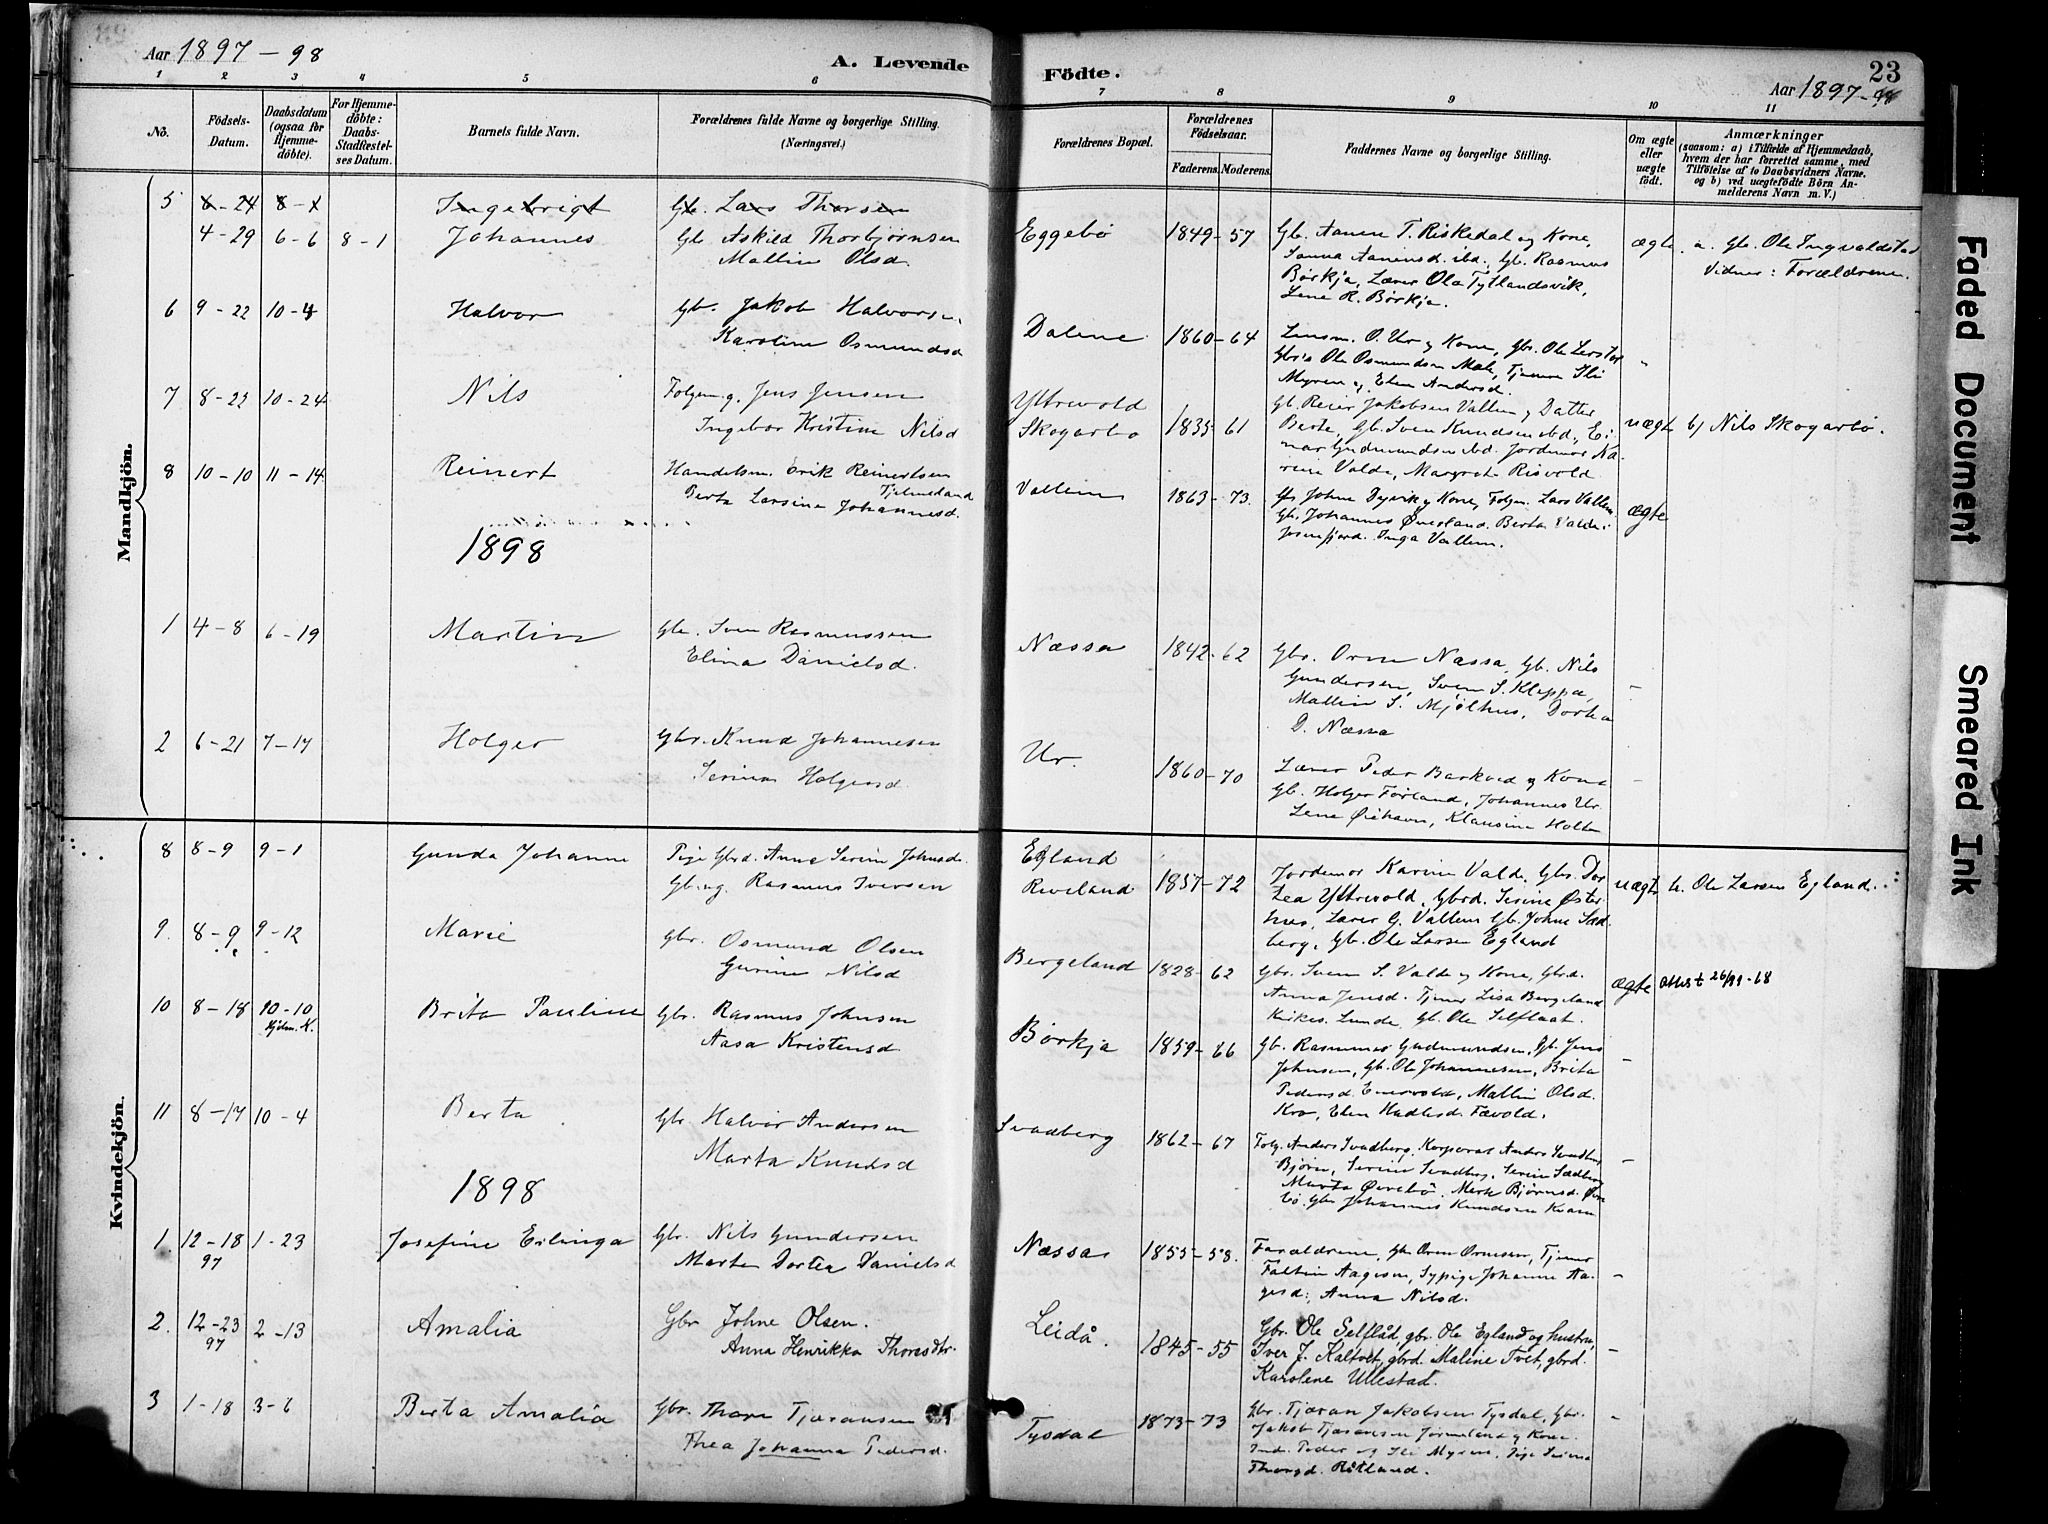 Aar 1897-98
A. Levende
Födte.
23
Aar 1897-98
1 2 3 4 5 6 7 8 9 10 11
No.
Födsels-Datum.
Daabsdatum (ogsaa for Hjemmedöbte).
For Hjemmedöbte: Daabs-Stadfæstelses Datum.
Barnets fulde Navn.
Forældrenes fulde Navne og borgerlige Stilling. (Næringsvei.)
Forældrenes Bopæl.
Forældrenes Födselsaar.
Faderens. Moderens.
Faddernes Navne og borgerlige Stilling.
Om ægte eller uægte födt.
Anmærkninger
(saasom: a) i Tilfælde af Hjemmedaab,
hvem der har forrettet samme, med
Tilföielse af to Daabsvidners Navne.
og b) ved uægtefödte Börn Anmelderens Navn m. V.)
Mandkjön.
5 6-24 8-1 Ingebrigt Gb. Lars Thorsen
4-29 6-6 8-1 Johannes Gb. Askild Thorbjørnsen
Mallin Olsd.
Eggebø 1849-57 Gb. Aanen T. Riskedal og Kone,
Sanna Aanensd. ibd., Gb. Rasmus
Børkja, Lærer Ola Tytlandsvik,
Lene R. Børkja.
ægte a. Gb. Ole Ingvaldstad
Vidner: Forældrene.
6 9-22 10-4 Halvor Gb. Jakob Halvorsen
Karoline Osmundsd
Dalene 1860-64 Lensm. O. Ur og Kone, Gbr. Ole
Ole Osmundsen Mæle, Tjener Ili
Myren og Elen Andersd. "
7 8-22 10-24 Nils Folgem. g. Jens Jensen
Ingebor Kristine Nilsd
Yttrevold
Skogarbø 1835-61 Gb. Reier Jakobsen Vallem og Datter
Berta, Gb. Sven Knudsen ibd., Ei-
nar Gudmundsen ibd. Jordemor Ka-
rine Valde, Margrete Risvold
uægte b) Nils Skogarbø.
8 10-10 11-14 Reinert Handelsm. Erik Reinertsen
Tjelmeland
Berta Larsine Johannesd.
Vallem 1863-73. Johne Dysvik og Kone, Folgm. Lars Vallem
Gb. Johannes Øvesland. Berta Valde
Jøsenfjord. Inga Vallem.
ægte
1898
1 4-8 6-19 Martin Gb. Sven Rasmussen
Elina Danielsd.
Næssa 1842-62 Gbr. Orm Næssa, Gb. Nils
Gundersen, Sven S. Kleppa,
Mallin S. Mjølhus, Dortea
D. Næssa
-
2 6-21 7-17 Holger Gbr. Knud Johannesen
Serina Holgersd.
Ur. 1860-70 Lærer Peder Barkved og Kone
Gb. Holger Førland, Johannes Ur.
Lene Øiehavn, Klausine Holta
-
Kvindekjön.
8 8-9 9-1 Gunda Johanne Pige Gbrd. Anne Serine Johnsd.
Gb. ug. Rasmus Iversen
Egland
Riveland 1857-72 Jordemor Karine Valde, Gbr. Dor-
tea Yttrevold, Gbrd. Serine Øster-
hus, Lærer G. Vallem, Gb. Johne Sæd-
berg, Gb. Ole Larsen Egland
uægte b. Ole Larsen Egland.
9. 8-9 9-12 Marie Gbr. Osmund Olsen
Gurine Nilsd
Bergeland 1828-62 Gbr. Sven S. Valde og Kone, Gbrd.
Anna Jensd. Tjener Lisa Bergeland
Kirkes. Lunde, Gb. Ole Selflaat.
ægte Attest 26/11-68
10 8-18 10-10
Hjelm. K.
Brita Pauline Gbr. Rasmus Johnsen
Aasa Kristensd
Børkja 1859-66 Gb. Rasmus Gudmundsen, Gb. Jens
Johnsen, Gb. Ole Johannesen, Brita
Pedersd. Enervold, Mallin Olsd.
Kro, Elen Hadlesd. Fævold.
-
11 8-17 10-4 Berta Gbr. Halvor Andersen
Marta Knudsd
Svadberg 1862-67 Folg. Anders Svadberg, Korporal Anders Svadberg
Bjørn, Serine Svadberg, Serine Sædberg
Marta Øvrebø, Bjørnsd. Øvre-
bø. Gbr. Johannes Knudsen Kvam
-
1898
1. 12-18
97
1-23 Josefine Erlinga Gbr. Nils Gundersen
Marta Dortea Danielsd
Næssa 1855-58. Forældrene, Gb. Orm Ormsen, Tjener
Faltin Aagesen, Sypige Johanne Aa-
gesd., Anna Nilsd.
-
2. 12-23
97
2-13 Amalia Gbr Johne Olsen.
Anna Henrikka Thoresdtr.
Leidå. 1845-55 Gbr. Ole Selflåd, gbr. Ole Egland og hustru,
Iver J. Kaltveit, gbrd. Maline Tveit, gbrd.
Karolene Ullestad.
-
3 1-18 3-6 Berta Amalia Gbr. Thore Tjæransen
Thea Johanna Pedersd.
Tysdal 1873-73 Gbr. Tjæran Jakobsen Tysdal, Gbr.
Jakob Tjæransen og Kone.
Ind. Peder og Ili Myren, Pige Serina
Thorsd. Ritland.
"
Faded Document
Smeared Ink